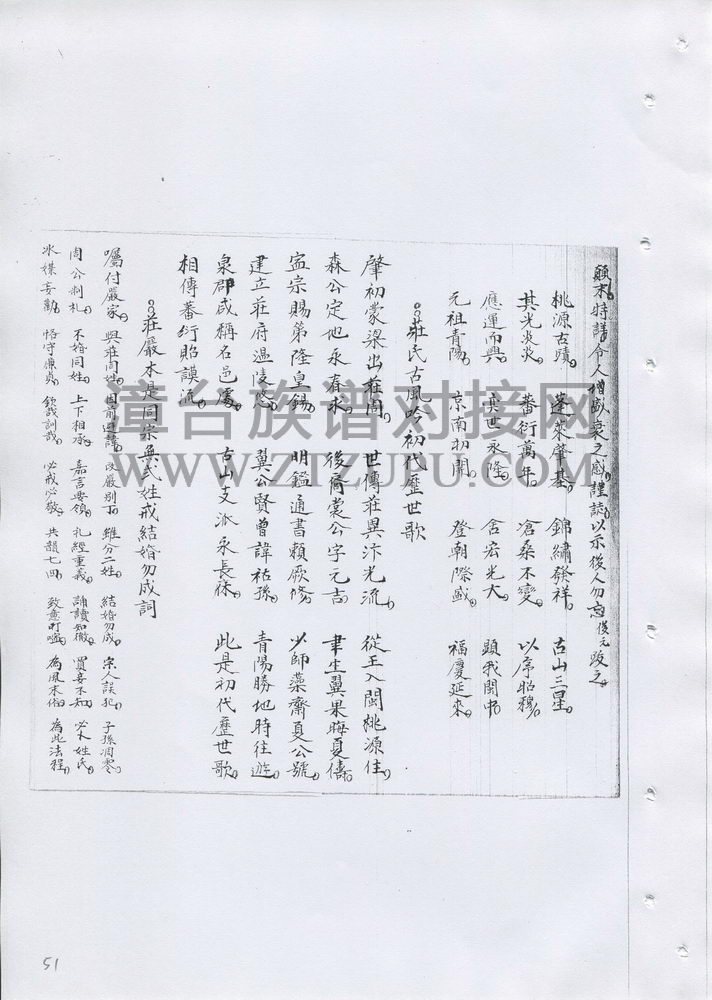 顛末時譜令人增盛衰之感謹誌以示後人勿忘俊元跋之
桃源古蹟 蓬萊肇基 錦繡發祥 古山三星
其光炎炎 蕃衍萬年 倉桑不變 以序昭穆
應運而興 奕世永隆 含宏光大 顕我閩中
元祖青陽 京南初開 登朝際盛 福慶延來
莊氏古風吟初代歷世歌
肇初蒙梁出莊周 世傳莊興汴光流 從王入閩桃源住
森公定他永春求 後裔裳公字元吉 聿生翼果晦夏儔
宣宗賜第隆皇錫 明鑑通書賴厥修 少師藻齋夏公號
建立莊府温陵悠 翼公賢曾諱祐孫 青陽勝地時往遊
泉郡咸稱名邑處 古山支派永長休 此是初代歷世歌
相傳蕃衍貽謨流
莊嚴本是同宗無弍姓戒結婚勿成詞
囑付嚴家 與莊同姓 因前避諱 改嚴別丁 雖分二姓 結婚勿成 宗人誤犯 子孫凋零
周公制礼 不婚同姓 上下相承 嘉言要領 礼經重義 誦讀知徹 買妾不知 必卜姓氏
冰媒妄勸 恪守廉貞 欽哉訓哉 必戒必敬 共韻七四 致意叮嚀 為風本俗 為此法程
51
章台族谱对接网
WWW.ZTZUPU.COM